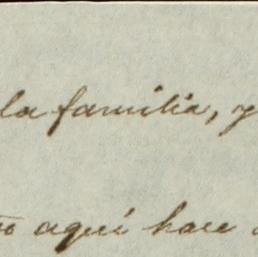 la familia, y
aquí hace